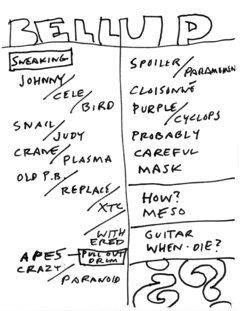 BELLUP
SNEAKING
JOHNNY/
CELE/
BIRD
SNAIL/
JUDY
CRANE/
PLASMA
OLD P.B./
REPLACE/
XTC/
WITH
ERED
APES—PULL OUT
DRUM
CRAZY/
PARANOID
SPOILER/
PARAMOUNT
CLOISONNÉ
PURPLE/
CYCLOPS
PROBABLY
CAREFUL
MASK
HOW?
MESO
GUITAR
WHEN·DIE?